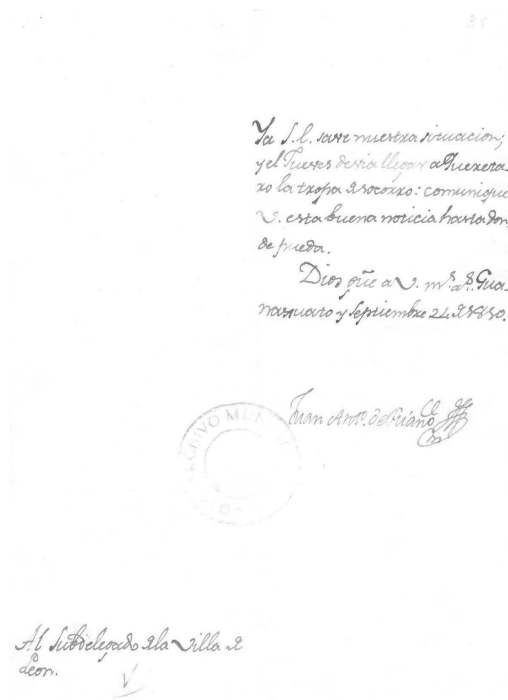 38
Ya S.E. save nuestra situacion;
y el Jueves devia llegar a Quereta-
ro la tropa de socorro: comunique
V. esta buena noticia hasta don-
de pueda.
Dios gũe a V. m.s a.s Gua-
naxuato y Septiembre 24 de 1810.
Juan Ant.o de Riaño
ARCHIVO MUN
Al Subdelegado de la Villa de
Leon.